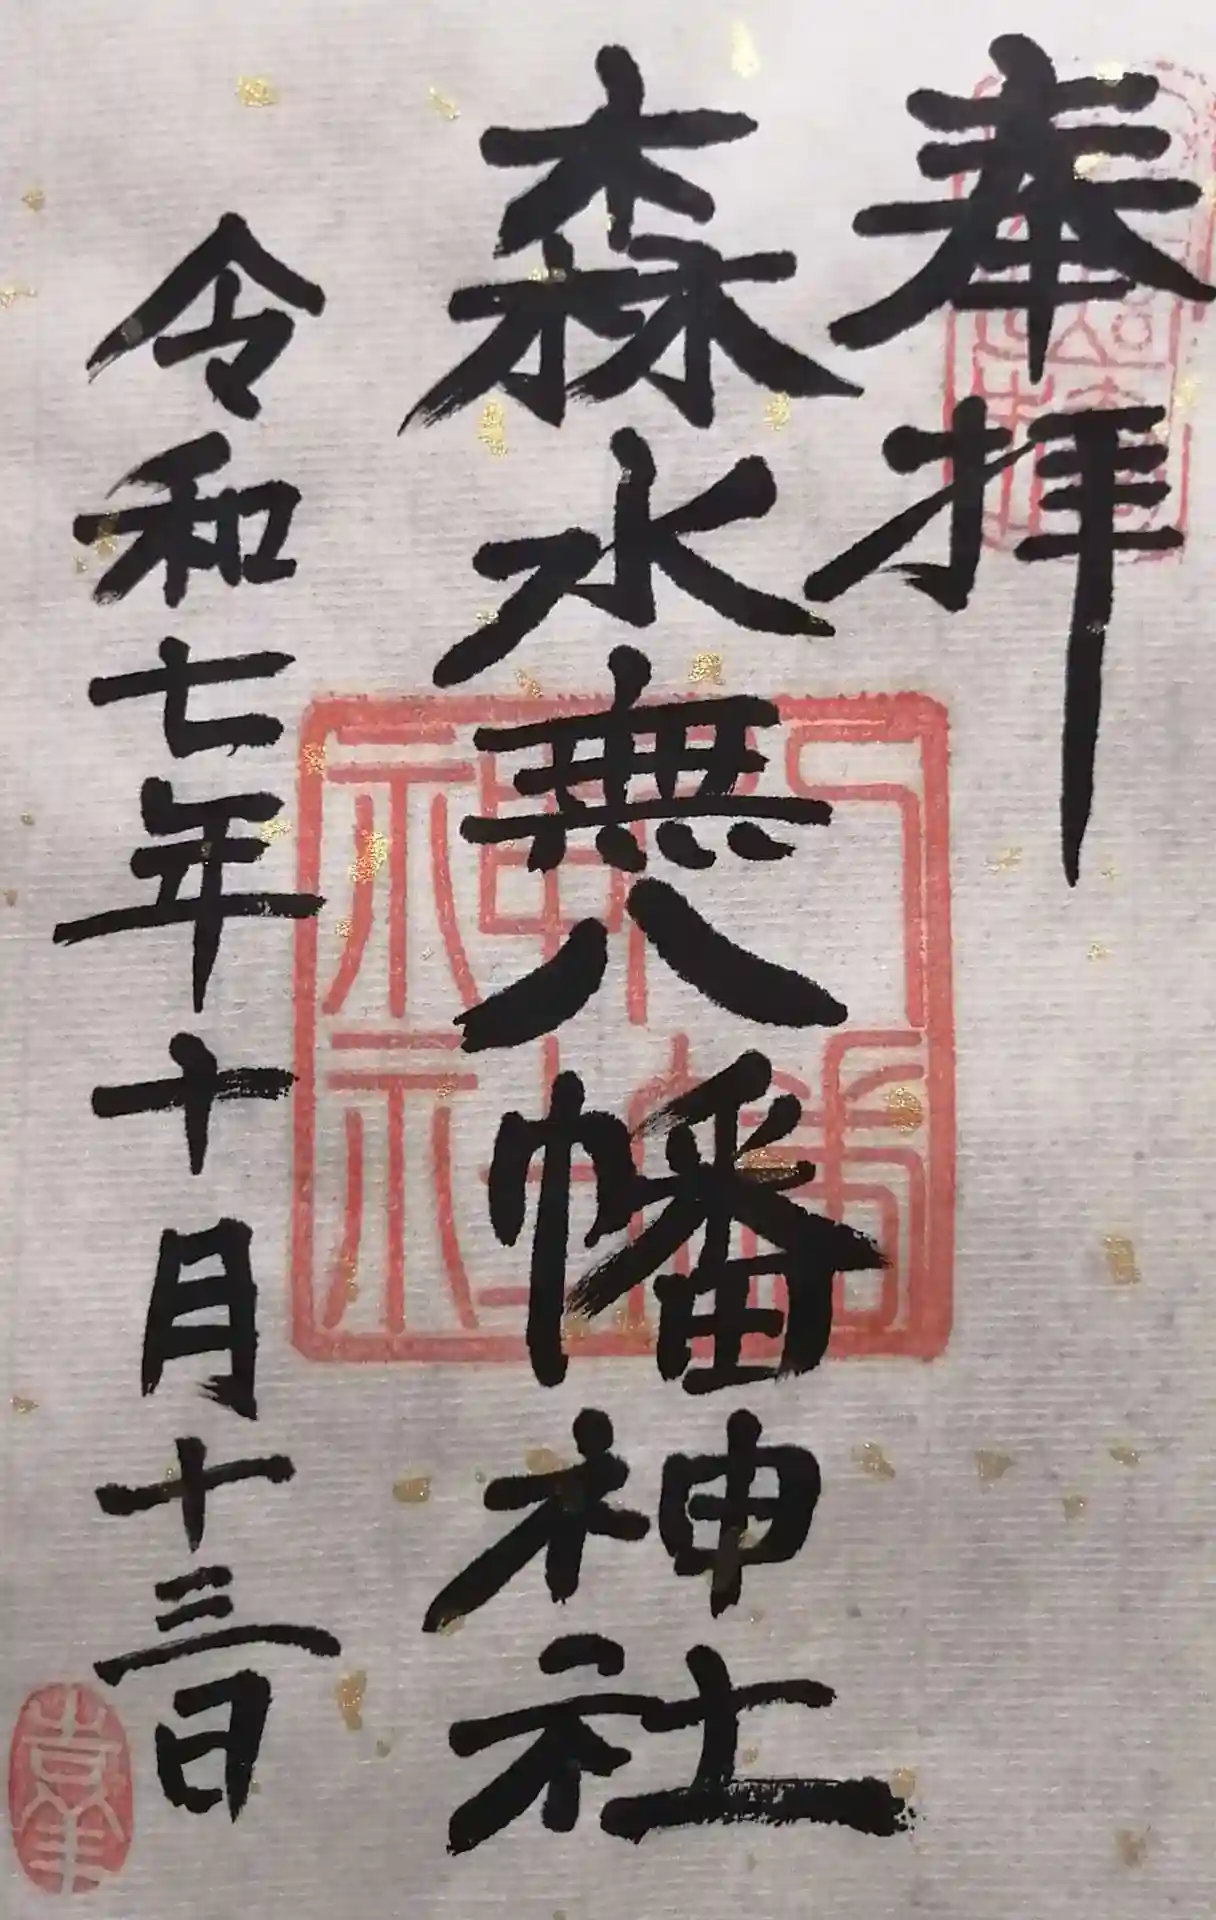 奉拝
森水無八幡神社
令和七年十月十三日
八幡神社